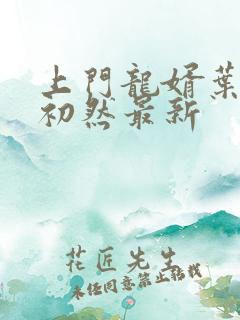 上門龍婿葉
初然最新
花匠先生
未经同意禁止转载